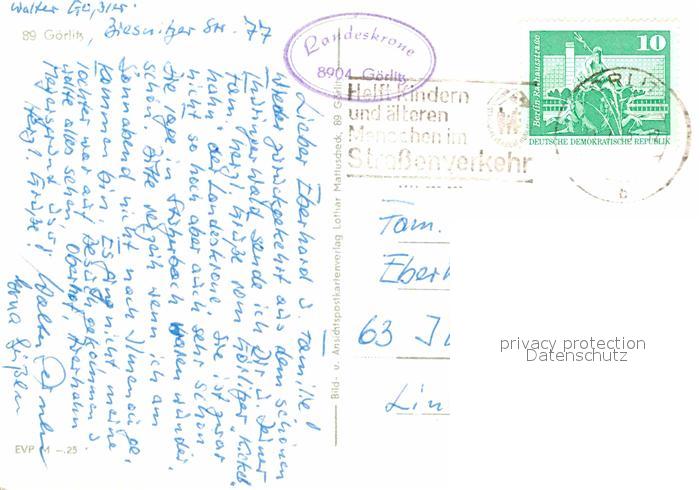 Walter
89 Görlitz, Biesnitzer Str. 77
Landeskrone
8904 Görlitz
Helft Kindern
und älteren
Menschen im
Straßenverkehr
Berlin-Rathausstraße
10
DEUTSCHE DEMOKRATISCHE REPUBLIK
b
Lieber Eberhard u. Familie!
Wieder zurückgekehrt aus dem schönen
Thüringer Wald sende ich Dir u. Deiner
Fam. herzl. Grüße vom Görlitzer
hahn, der Landeskrone. Sie ist zwar
nicht so hoch aber auch sehr schön.
Die Tage in Stützerbach waren wunder-
schön. Bitte verzeih wenn ich am
Sonnabend nicht nach Ilmenau ge-
kommen bin. Es ging nicht meine
Tochter war auf Besuch gekommen u
wollte alles sehen, Oberhof,
Herzl. Grüße!
Walter
Bild- u. Ansichtspostkartenverlag Lothar Mattuscheck, 89 Görlitz
Fam.
Eber
63
Lin
privacy protection
Datenschutz
EVP M -.25